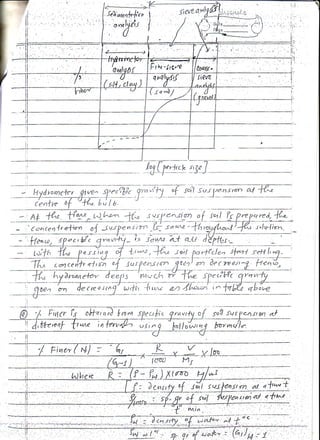 Sedimentation
analysis
sieve analysis
Hydrometer
analysis
(silt, clay)
Fine-sieve
analysis
(sand)
Coarse-
sieve
analysis
(gravel)
%
finer
log [particle size]
- Hydrometer gives specific gravity of soil suspension at the
centre of the bulb.
- At the time, when the suspension of soil is prepared, the
concentration of suspension is same throughout the
- Hence, specific gravity is same at all depths.
- With the passing of time, the soil particles start settling.
The concentration of suspension goes on decreasing. Hence,
the hydrometer deeps much & the specific gravity
goes on decreasing with time as shown in table above
% Finer is obtained from specific gravity of soil suspension at
different time intervals using following formula
% Finer (N) = G / (G-1) x R / 1000 x V / Ms x 100
Where R = (ρ - ρw) x 1000
ρ = density of soil suspension at time t
= sp. gr of soil suspension at time
t min.
ρw = density of water at t °c
sp. gr of water = = 1